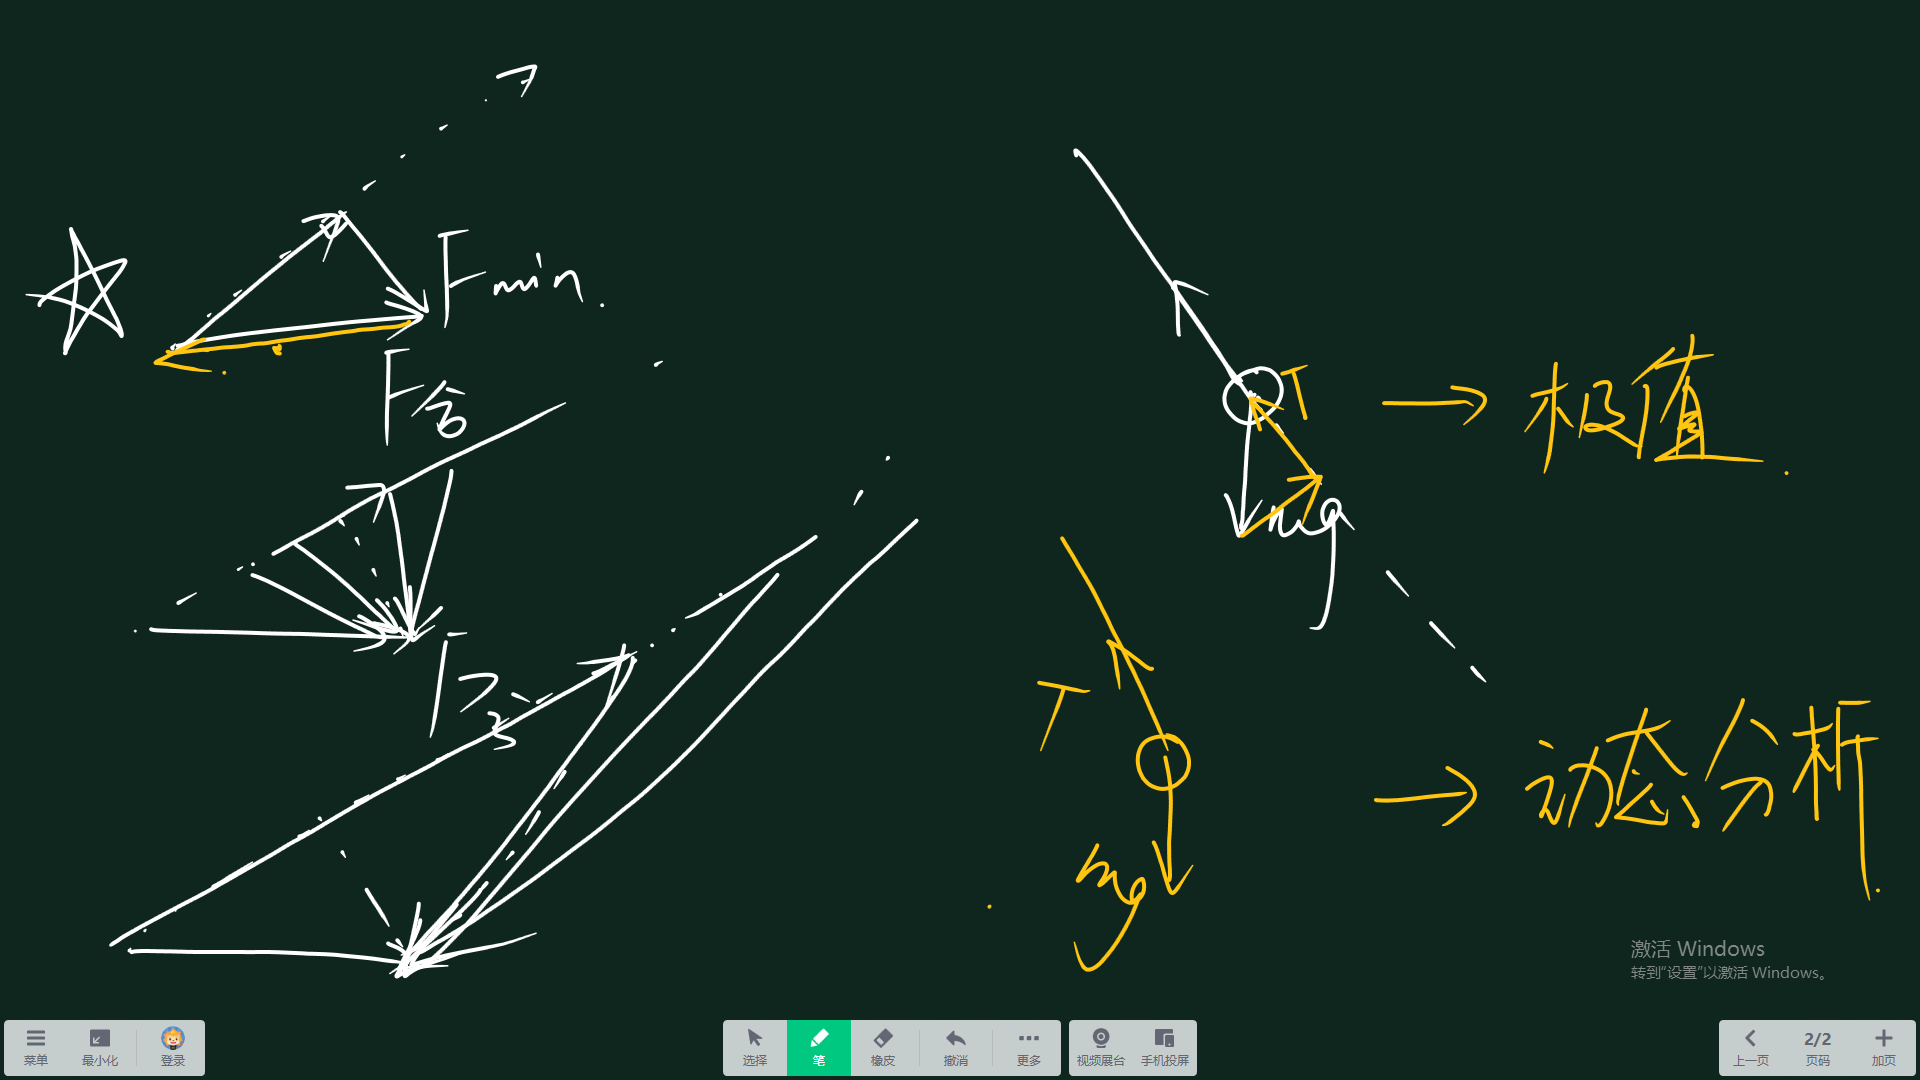 Fmin.
F合
F₃
T
mg
→ 极值.
T
mg
→ 动态分析.
激活 Windows
转到“设置”以激活 Windows。
菜单
最小化
登录
选择
笔
橡皮
撤消
更多
视频展台
手机投屏
上一页
2/2
页码
加页